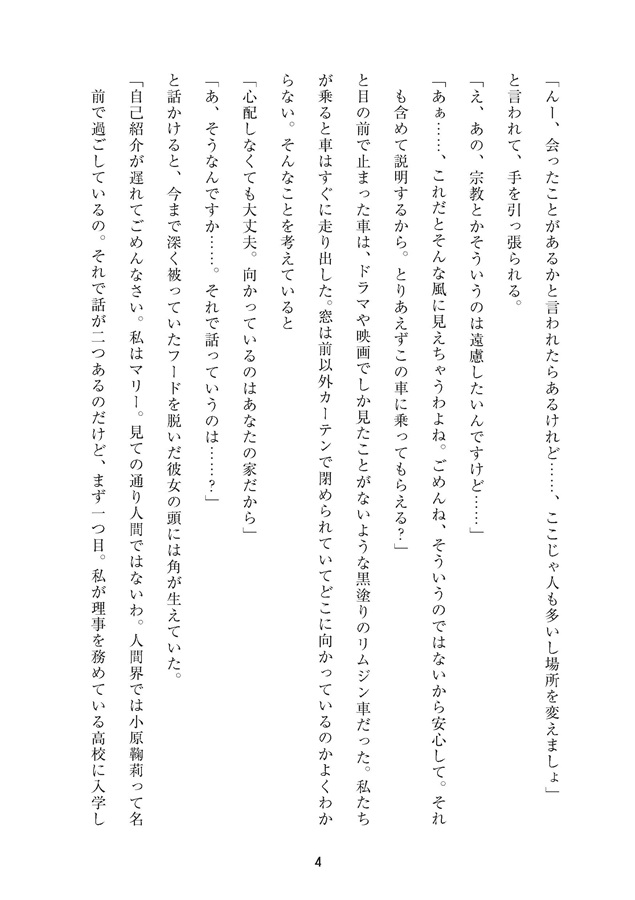 「んー、会ったことがあるかと言われたらあるけれど……、ここじゃ人も多いし場所を変えましょ」
と言われて、手を引っ張られる。
「え、あの、宗教とかそういうのは遠慮したいんですけど……」
「あぁ……、これだとそんな風に見えちゃうわよね。ごめんね、そういうのではないから安心して。それ
も含めて説明するから。とりあえずこの車に乗ってもらえる?」
と目の前で止まった車は、ドラマや映画でしか見たことがないような黒塗りのリムジン車だった。私たち
が乗ると車はすぐに走り出した。窓は前以外カーテンで閉められていてどこに向かっているのかよくわか
らない。そんなことを考えていると
「心配しなくても大丈夫。向かっているのはあなたの家だから」
「あ、そうなんですか……。それで話っていうのは……?」
と話かけると、今まで深く被っていたフードを脱いだ彼女の頭には角が生えていた。
「自己紹介が遅れてごめんなさい。私はマリー。見ての通り人間ではないわ。人間界では小原鞠莉って名
前で過ごしているの。それで話が二つあるのだけど、まず一つ目。私が理事を務めている高校に入学し
4